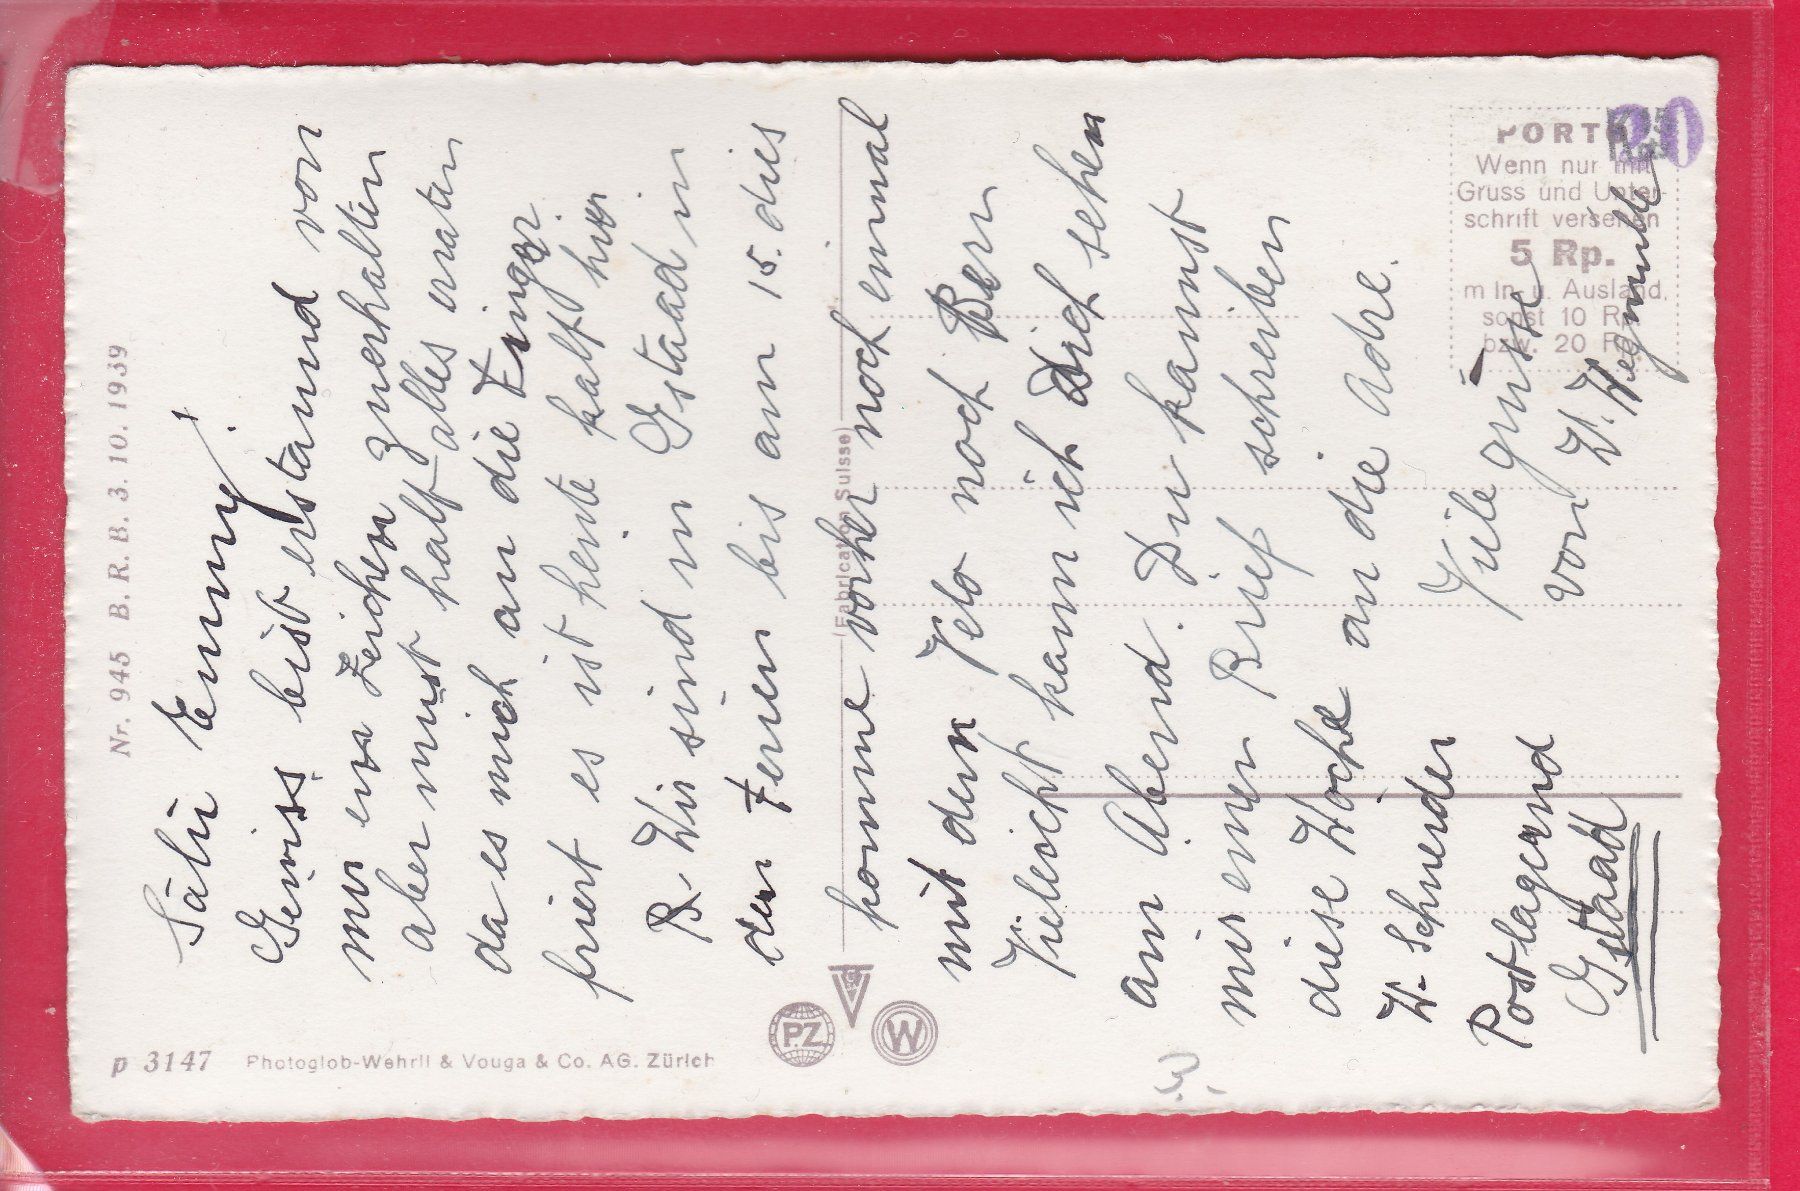 Nr. 945 B. R. B. 3. 10. 1939
Sälü Emmy!
Gewiss bist erstaund von
mir ein Zeichen zuerhalten
aber must halt alles eraten
da es mich an die Finger
friert es ist heute kalt hier
Wir sind in Gstaad in
den Ferien bis am 15. dies
komme vorher noch einmal
mit dem Velo nach Bern
Vieleicht kann ich Dich sehen
am Abend. Du kannst
mir einen Brief schreiben
diese Woche an die Adre.
W. Schneider
Postlagernd
Gstaad
Viele grüsse
von W. Wegmüller
p 3147 Photoglob-Wehrli & Vouga & Co. AG. Zürich
P.Z
W
(Fabrication Suisse)
PORTO
Wenn nur mit
Gruss und Unter-
schrift versehen
5 Rp.
im In- u. Ausland,
sonst 10 Rp.
bzw. 20 Rp.
20